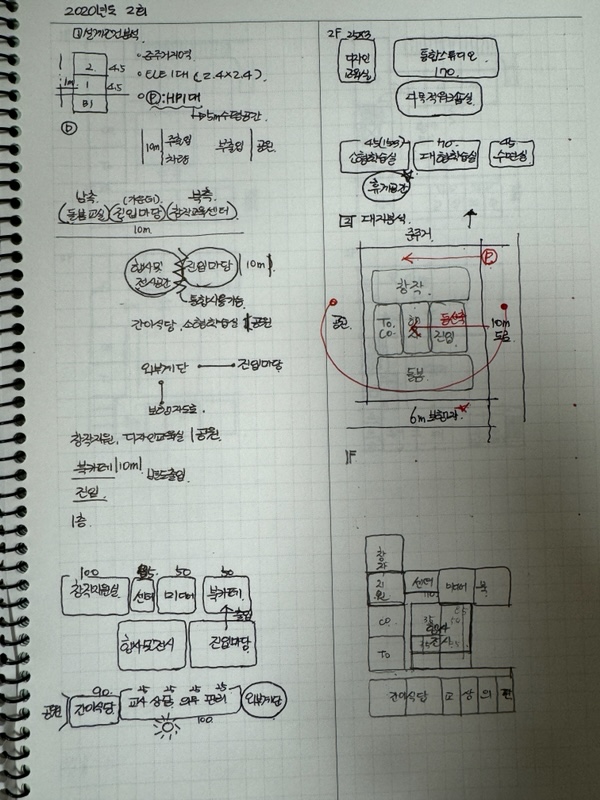 2020년도 2회
1 설계조건분석
2
4.5
1m
1
4.5
B1
• 준주거지역
• ELE 1대 (2.4×2.4)
• P : HP1대
D
10m
주출입
차량
부출입
공원
남측
북측
(돌봄교실)(진입마당)(창작교육센터)
10m
행사및
전시공간
진입마당
10m
통합사용가능
간이식당, 소형학습실
공원
외부계단
진입마당
보행자도로
창작지원, 디자인교육실
공원
북카페
10m
별도출입
진입
1층
100
50
50
창작지원실
센터
미디어
북카페
출입
행사및전시
진입마당
공원
90
25
25
25
25
간이식당
교사
상담
의무
관리
100
외부계단
2F
디자인
교육실
통합스튜디오
170
45(155)
70
45
소형학습실
대형학습실
수면실
휴게공간
2 대지분석
준주거
P
창작
공원
TO.
CO.
진입
10m
도로
돌봄
6m
1F
창작
지원
센터
미디어
북
CO
TO
간이식당
교
상
의
관